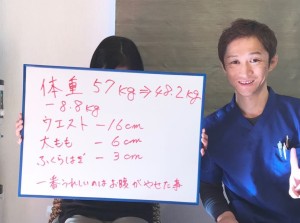 体重 57kg⇒48.2kg
-8.8kg
ウエスト -16cm
太もも -6cm
ふくらはぎ -3cm
一番うれしいのはお腹がやせた事